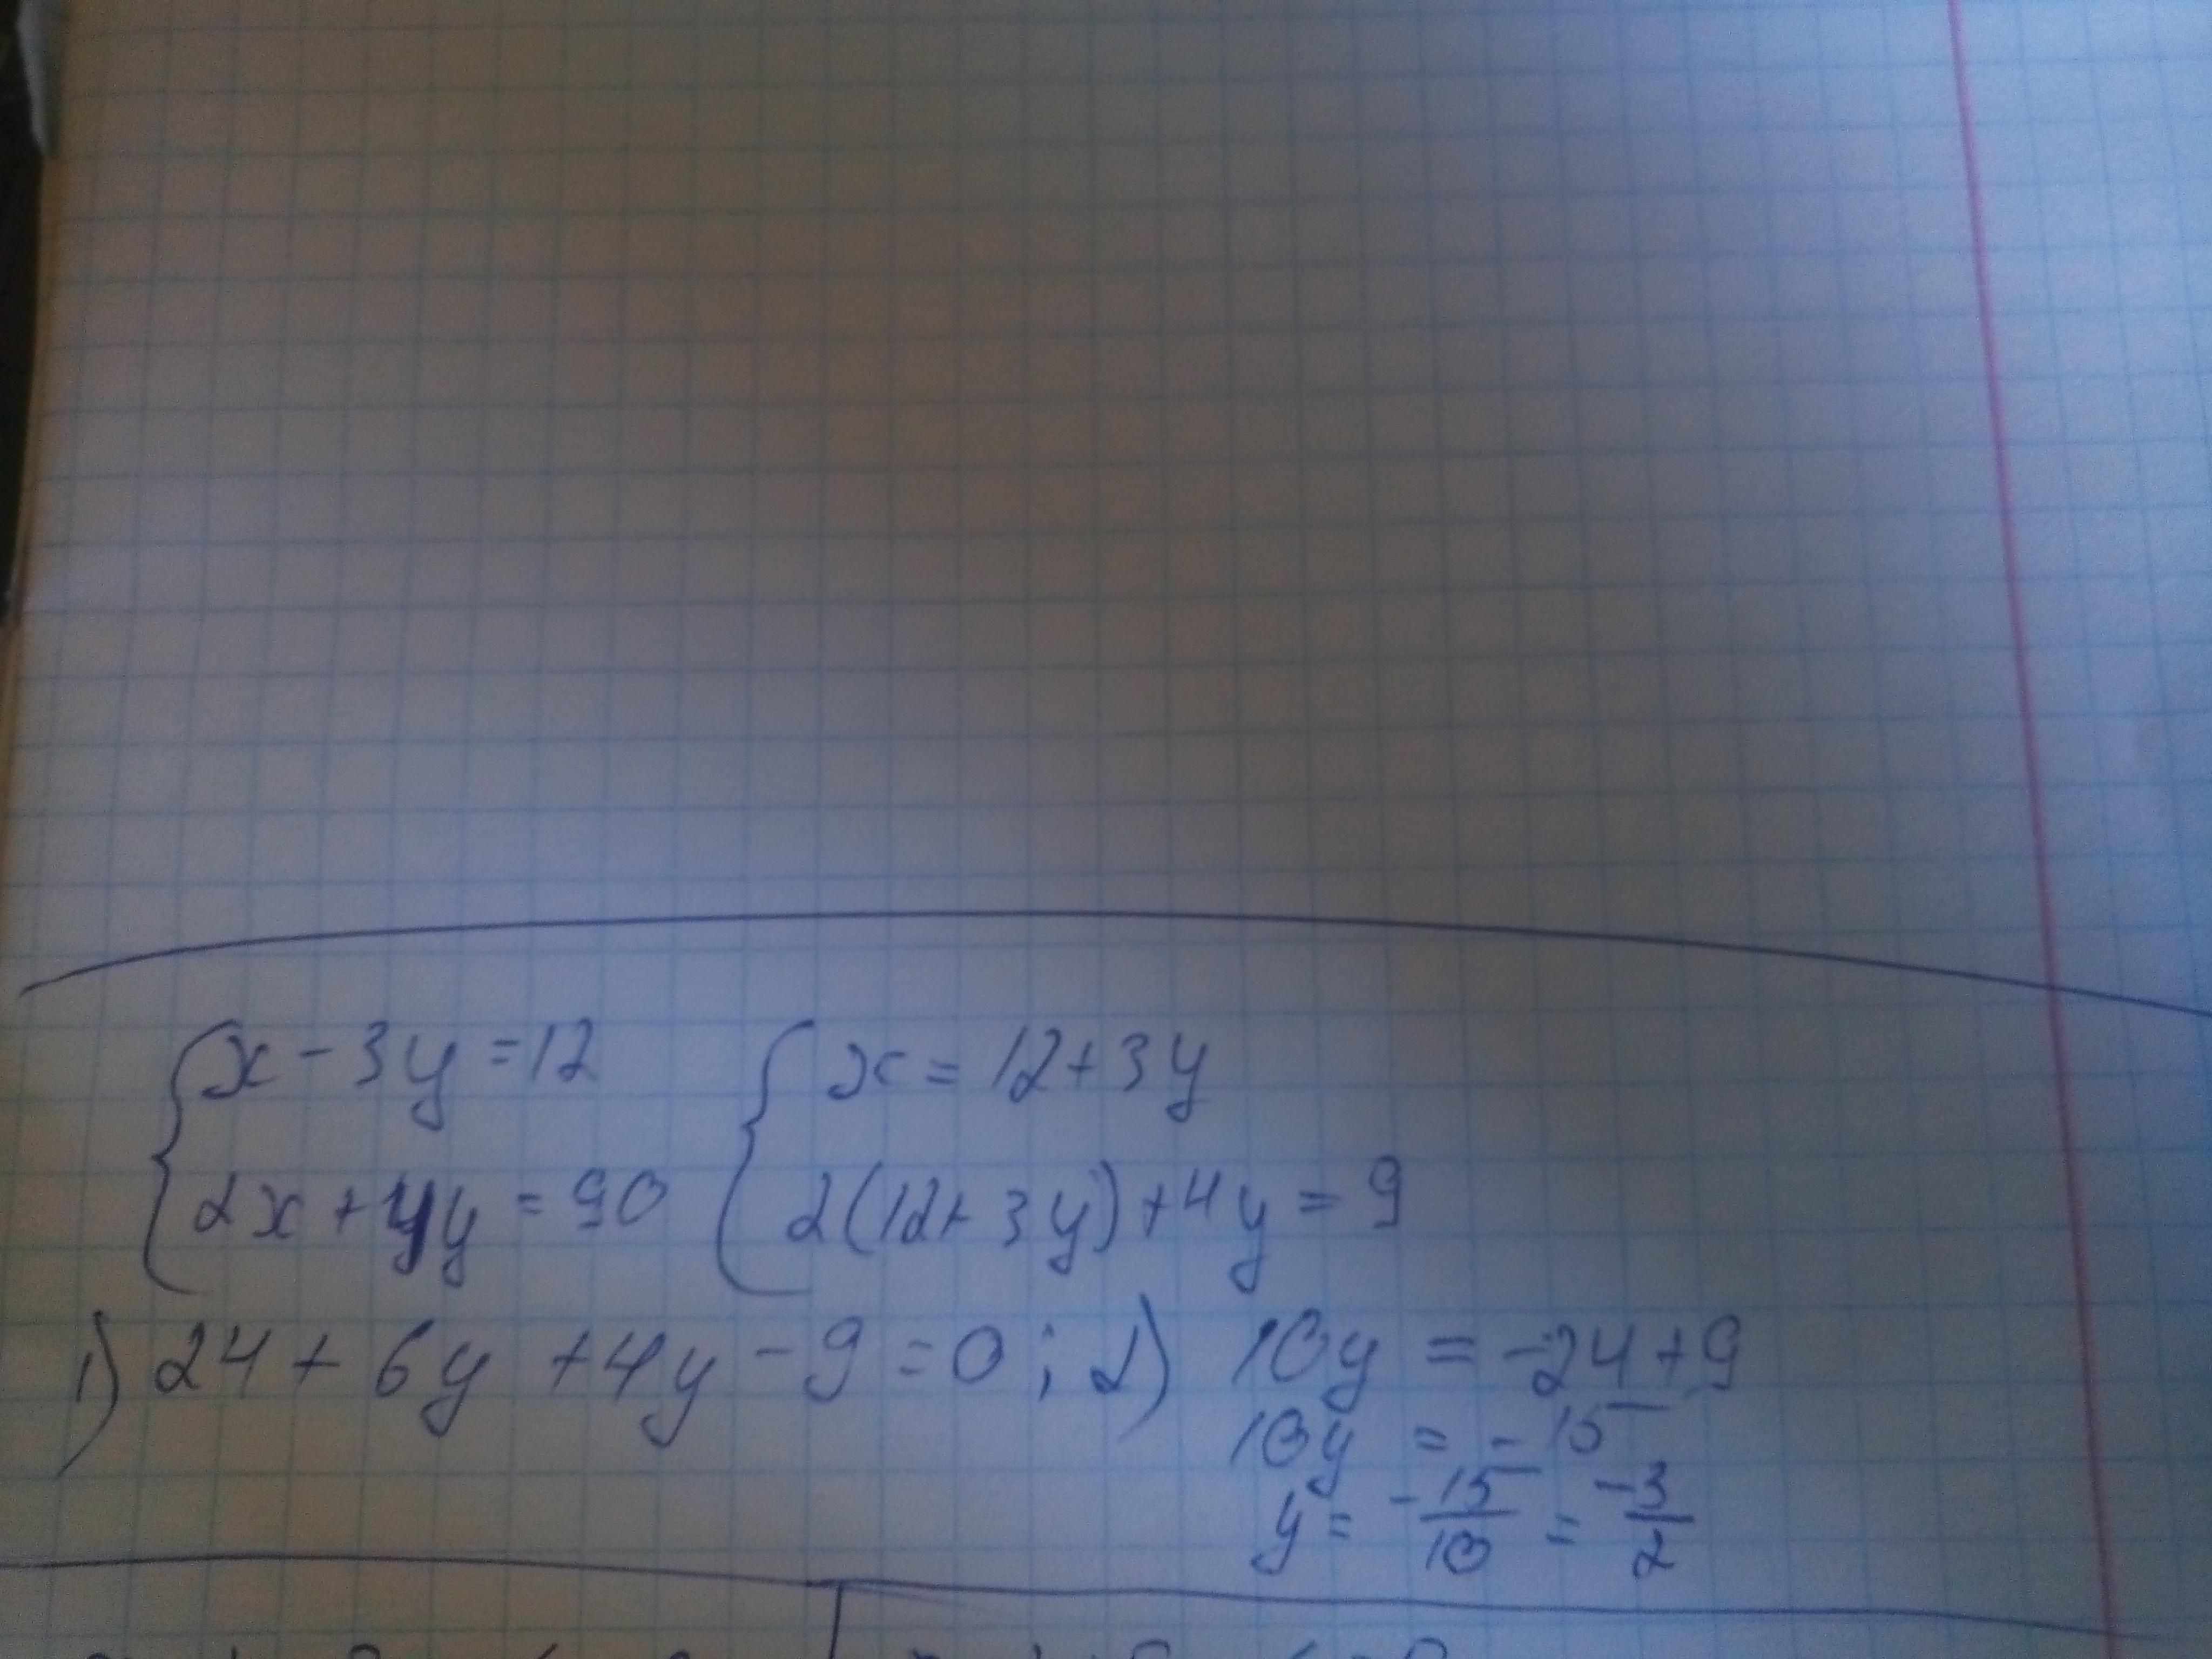 x - 3y = 12 x = 12 + 3y
2x + 4y = 90 2(12 + 3y) + 4y = 9
1) 24 + 6y + 4y - 9 = 0; 2) 10y = -24 + 9
10y = -15
y = -15/10 = -3/2